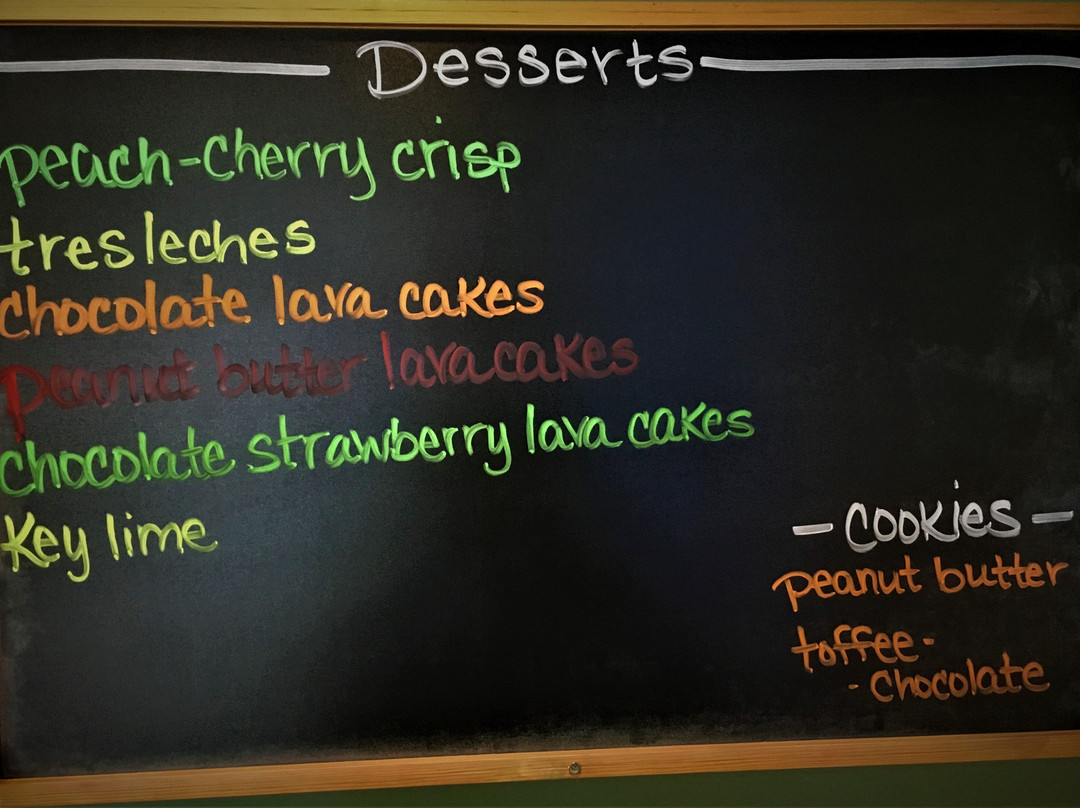 Desserts
peach-cherry crisp
tres leches
chocolate lava cakes
peanut butter lava cakes
chocolate strawberry lava cakes
Key lime
- cookies -
peanut butter
toffee-
-chocolate